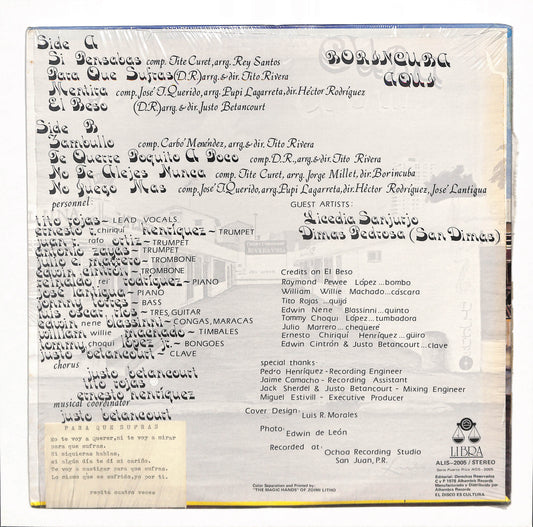 Side A
Si Pensabas comp. Tito Curet, arrg. Rey Santos
Para Que Sufras (D.R) arrg. & dir. Tito Rivera
Mentira comp. José T. Querido, arrg. Pupi Lagarreta, dir. Héctor Rodríguez
El Beso (D.R) arrg. & dir. Justo Betancourt
BORINCUBA
AQUI
Side B
Zambullo comp. Carbó Menéndez, arrg. & dir. Tito Rivera
Te Querre Poquito A Poco comp. D.R., arrg. & dir. Tito Rivera
No Te Alejes Nunca comp. Tito Curet, arrg. Jorge Millet, dir. Borincuba
No Juego Mas comp. José T. Querido, arrg. Pupi Lagarreta, dir. Héctor Rodríguez, José Lantigua
personnel:
tito rojas — LEAD VOCALS
ernesto r. chiriqui henríquez — TRUMPET
juan t. rofo ortiz — TRUMPET
antonio zayas — TRUMPET
julio marrero — TROMBONE
edwin cintrón — TROMBONE
reinaldo rei rodríguez — PIANO
josé lantigua — PIANO
johnny torres — BASS
luis oscar rios — TRES, GUITAR
edwin nene blassinni — CONGAS, MARACAS
william willie machado — TIMBALES
tommy choqui lópez jr. — BONGOES
justo betancourt — CLAVE
chorus
justo betancourt
tito rojas
ernesto henríquez
musical coordinator
justo betancourt
GUEST ARTISTS:
Licedia Sanjurjo
Dimas Pedrosa (San Dimas)
Credits on El Beso
Raymond Pewee López...bombo
William Willie Machado...cáscara
Tito Rojas ...quijá
Edwin Nene Blassinni ...quinto
Tommy Choqui López... tumbadora
Julio Marrero ...chequeré
Ernesto Chiriqui Henríquez ...güiro
Edwin Cintrón & Justo Betancourt ...clave
special thanks-
Pedro Henríquez - Recording Engineer
Jaime Camacho - Recording Assistant
Jack Sherdel & Justo Betancourt - Mixing Engineer
Miguel Estivill - Executive Producer
Cover Design: Luis R. Morales
Photo: Edwin de León
Recorded at: Ochoa Recording Studio
San Juan, P.R.
PARA QUE SUFRAS
No te voy a querer, ni te voy a mirar
para que sufras.
Si siquieras hablas,
si algún día te dí mi cariño.
Te voy a castigar para que sufras.
Lo mismo que he sufrido, yo por ti.
repita cuatro veces
Color Separation and Printed by:
"THE MAGIC HANDS" OF ZOIMI LITHO
LIBRA
ALIS-2005 / STEREO
Serie Puerto Rico AGS-2005
Editorial: Derechos Reservados
C y P 1978 Alhambra Records
Manufacturado y Distribuido por
Alhambra Records
EL DISCO ES CULTURA